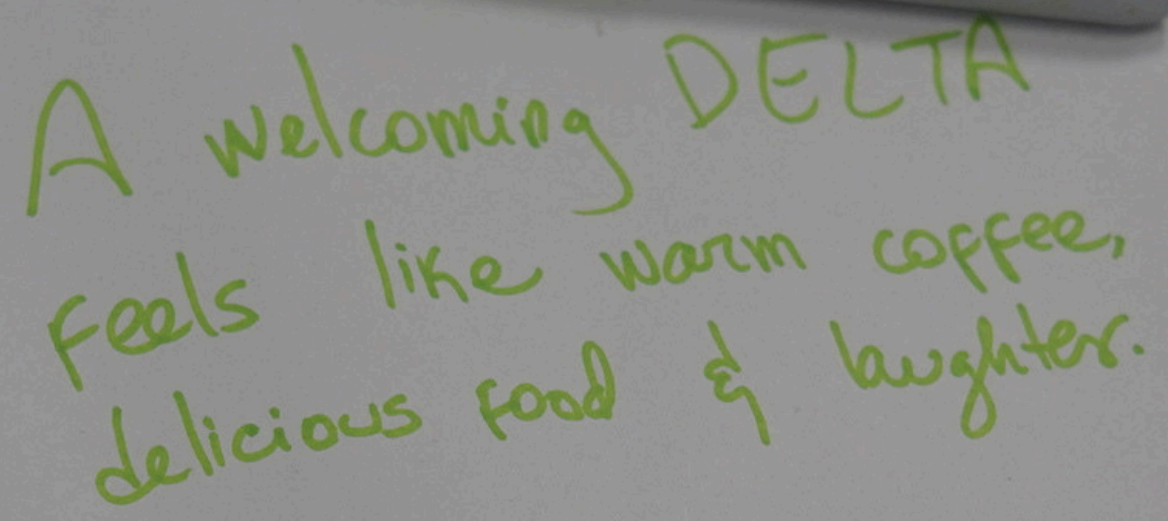 A welcoming DELTA
feels like warm coffee,
delicious food & laughter.